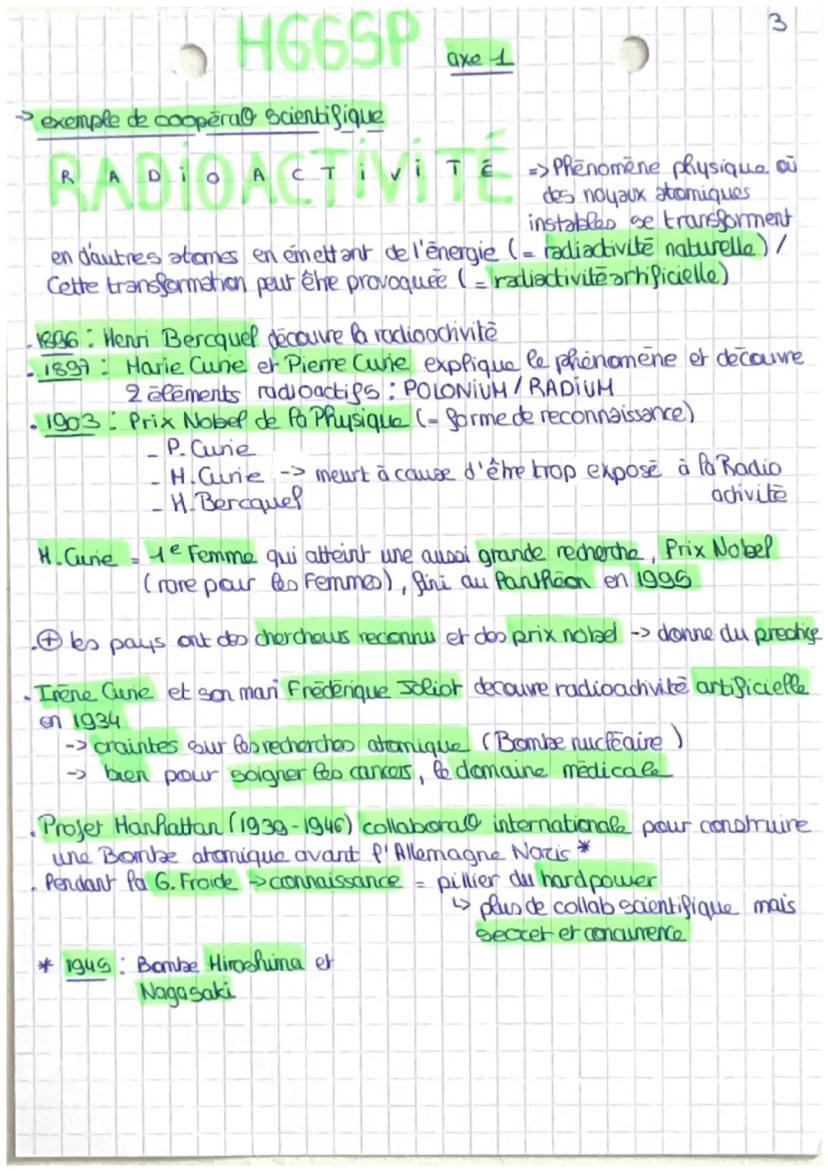 3
HGGSP axe 1
-> exemple de coopéra° scientifique
RADIOACTIVITÉ => Phénomène physique où
des noyaux atomiques
instables se transforment
en d'autres atomes en émettant de l'énergie (= radiactivité naturelle) /
Cette transformation peut être provoquée (= radiactivité artificielle)
. 1896 : Henri Bercquel découvre la radioactivité
. 1897 : Marie Curie et Pierre Curie explique le phénomène et découvre
2 éléments radioactifs : POLONIUM / RADIUM
. 1903 : Prix Nobel de la Physique (= forme de reconnaissance)
- P. Curie
- M. Curie -> meurt à cause d'être trop exposé à la Radio
activité
- H. Bercquel
M. Curie = 1e Femme qui atteint une aussi grande recherche, Prix Nobel
(rare pour les Femmes), fini au Panthéon en 1995
. ⊕ les pays ont des chercheurs reconnu et des prix nobel -> donne du prestige
. Irène Curie et son mari Frédérique Joliot decouvre radioactivité artificielle
en 1934
-> craintes sur les recherches atomique (Bombe nucléaire)
-> bien pour soigner les cancers, le domaine médicale
. Projet Manhattan (1939-1946) collabora° internationale pour construire
une Bombe atomique avant l'Allemagne Nazis *
. Pendant la G. Froide -> connaissance = pillier du hard power
↳ plus de collab scientifique mais
secret et concurrence
* 1945 : Bombe Hiroshima et
Nagasaki